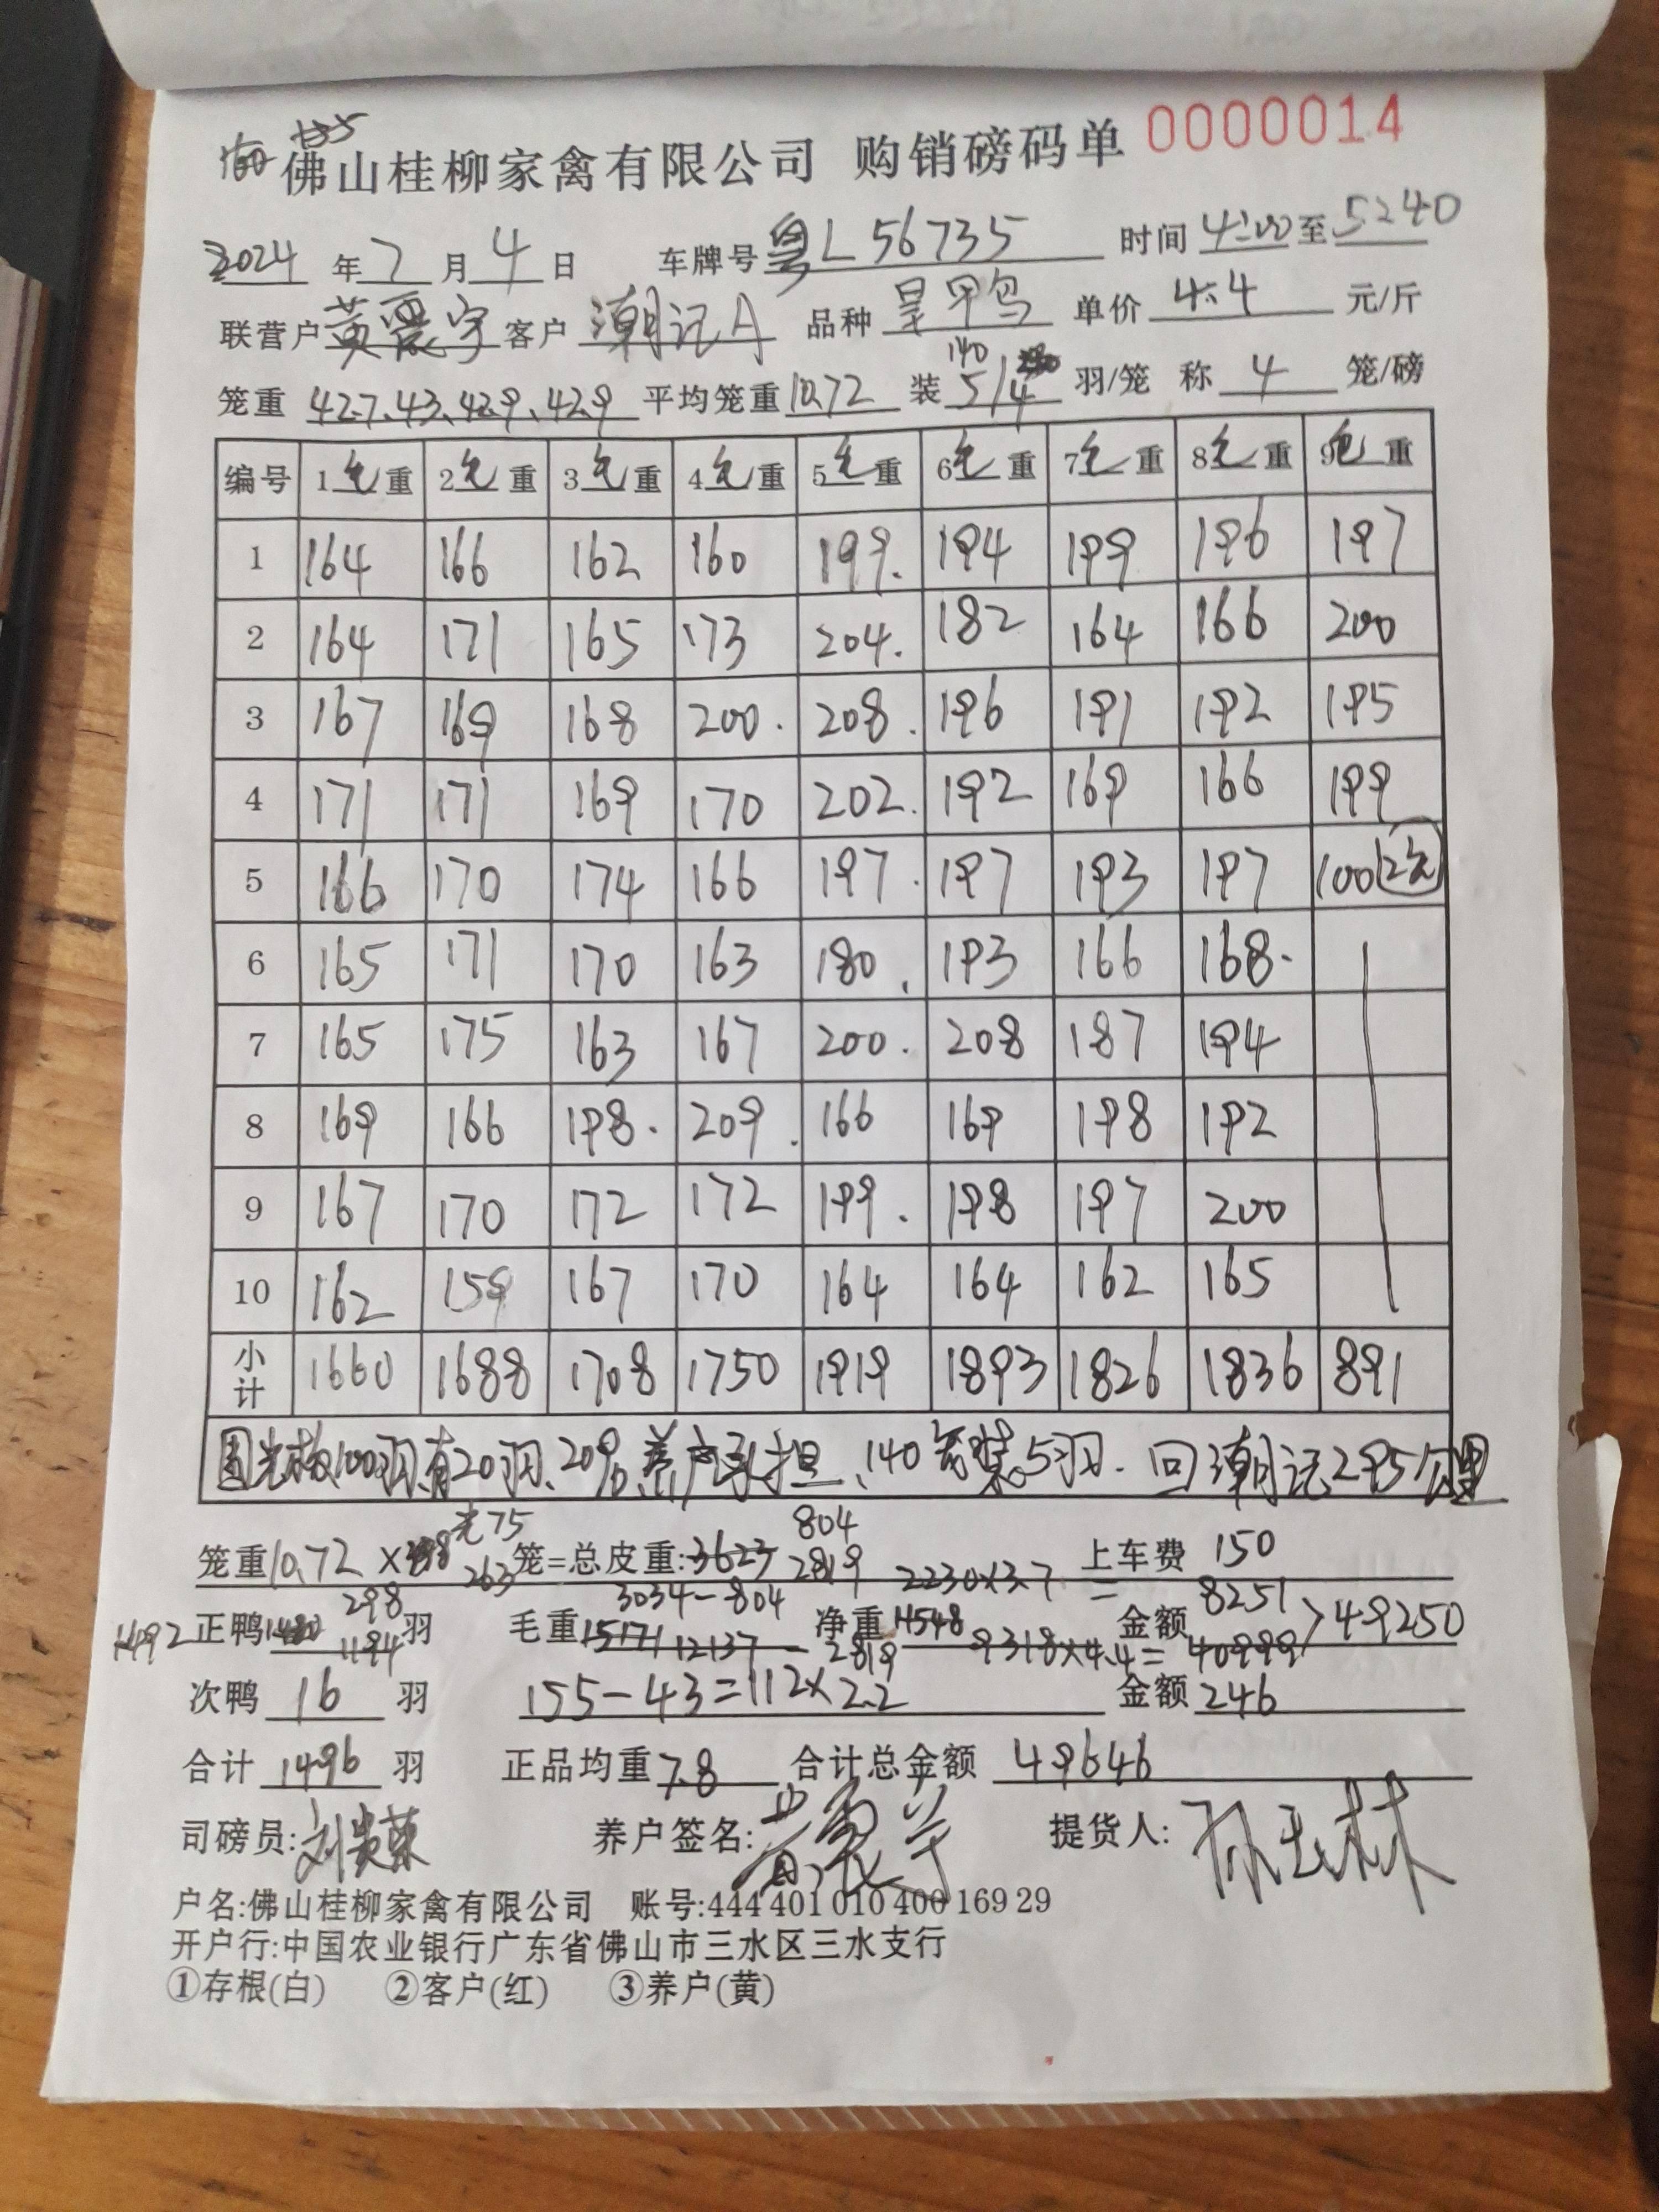 佛山桂柳家禽有限公司 购销磅码单 0000014
2024 年 7 月 4 日 车牌号 粤L56735 时间 4:00 至 5:40
联营户 黄震宇 客户 潮记A 品种 单价 4.4 元/斤
笼重 42.7、43、42.9、42.9 平均笼重 10.72 装 5/4 140 羽/笼 称 4 笼/磅
编号 1 毛 重 2 毛 重 3 毛 重 4 毛 重 5 毛 重 6 毛 重 7 毛 重 8 毛 重 9 毛 重
1 164 166 162 160 199. 194 199 196 197
2 164 171 165 173 204. 182 164 166 200
3 167 169 168 200. 208. 196 191 192 195
4 171 171 169 170 202. 192 169 166 199
5 166 170 174 166 197. 197 193 197 100
6 165 171 170 163 180. 193 166 168.
7 165 175 163 167 200. 208 187 194
8 169 166 198. 209. 166 169 198 192
9 167 170 172 172 199. 198 197 200
10 162 159 167 170 164 164 162 165
小计 1660 1688 1708 1750 1919 1893 1826 1836 891
100羽有20羽、20名养户承担、140 装5羽. 回潮记295公里
75 804
笼重 10.72 × 263 笼=总皮重: 3623 2819 上车费 150
298 3034-804 2230×3.7 = 8251
1492 正鸭 1194 羽 毛重 15171 净重 11548 金额 >49250
12137 - 2819 9318×4.4= 40999
次鸭 16 羽 155-43=112×2.2 金额 246
合计 1496 羽 正品均重 7.8 合计总金额 49646
司磅员: 刘贵荣 养户签名: 黄震宇 提货人:
户名:佛山桂柳家禽有限公司 账号:444 401 010 400 169 29
开户行:中国农业银行广东省佛山市三水区三水支行
①存根(白) ②客户(红) ③养户(黄)